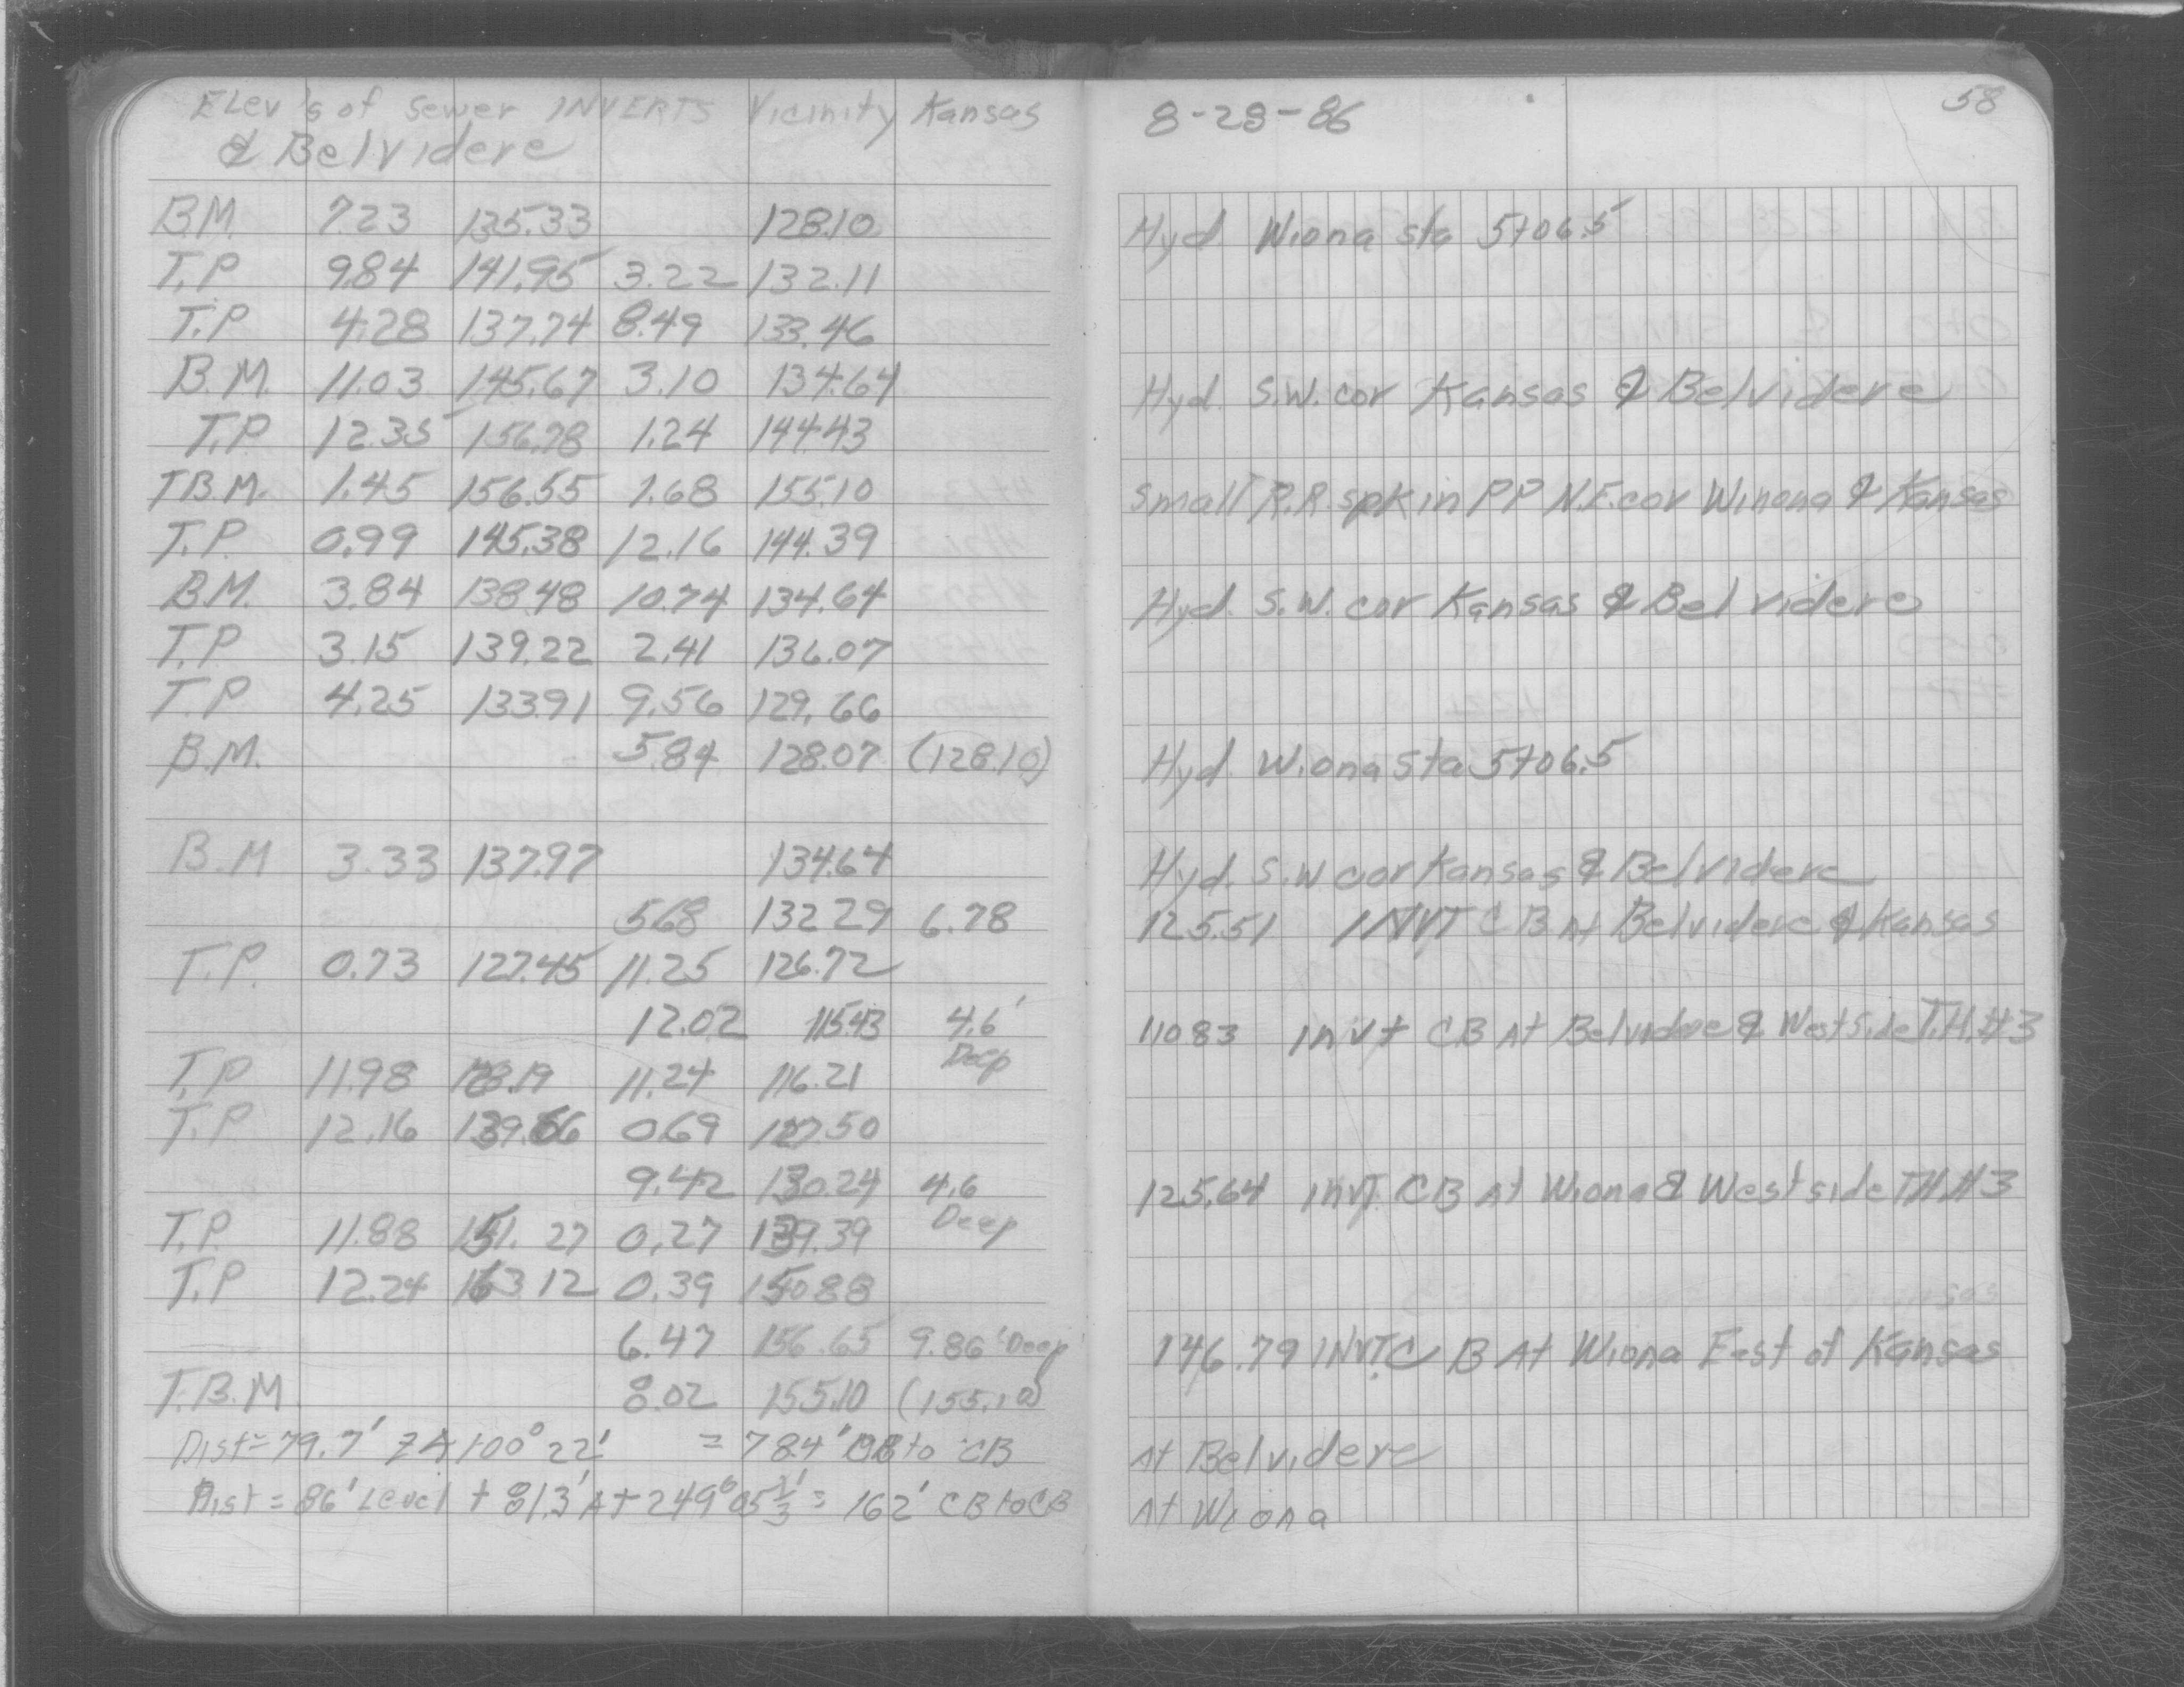 Elev's of Sewer INVERTS Vicinity Kansas
& Belvidere
B.M. 7.23 135.33 128.10
T.P 9.84 141.95 3.22 132.11
T.P 4.28 137.74 8.49 133.46
B.M. 11.03 145.67 3.10 134.64
T.P 12.35 156.78 1.24 144.43
T.B.M. 1.45 156.55 1.68 155.10
T.P. 0.99 145.38 12.16 144.39
B.M. 3.84 138.48 10.74 134.64
T.P 3.15 139.22 2.41 136.07
T.P 4.25 133.91 9.56 129.66
B.M. 5.84 128.07 (128.10)
B.M 3.33 137.97 134.64
5.68 132.29 6.78
T.P. 0.73 127.45 11.25 126.72
12.02 115.43 4.6'
Deep
T.P 11.98 128.19 11.24 116.21
T.P 12.16 139.66 0.69 127.50
9.42 130.24 4.6
Deep
T.P. 11.88 151.27 0.27 139.39
T.P 12.24 163.12 0.39 150.88
6.47 156.65 9.86' Deep
T.B.M. 8.02 155.10 (155.10)
Dist = 79.7' 100° 22' = 78.4' CB to CB
Dist = 86' Level + 81.3' At 249° 05 = 162' CB to CB
8-28-86
58
Hyd Wiona sta 5+06.5
Hyd. S.W. cor Kansas & Belvidere
Small R.R. spk in PP N.E. cor Winona & Kansas
Hyd. S.W. cor Kansas & Belvidere
Hyd. Wiona Sta 5+06.5
Hyd. S.W cor Kansas & Belvidere
125.51 INVT CB At Belvidere & Kansas
110.83 Invt CB At Belvidere & West side T.H.#3
125.64 INVT. CB At Wiona & West side TH #3
146.79 INVT. CB At Wiona East of Kansas
At Belvidere
At Wiona